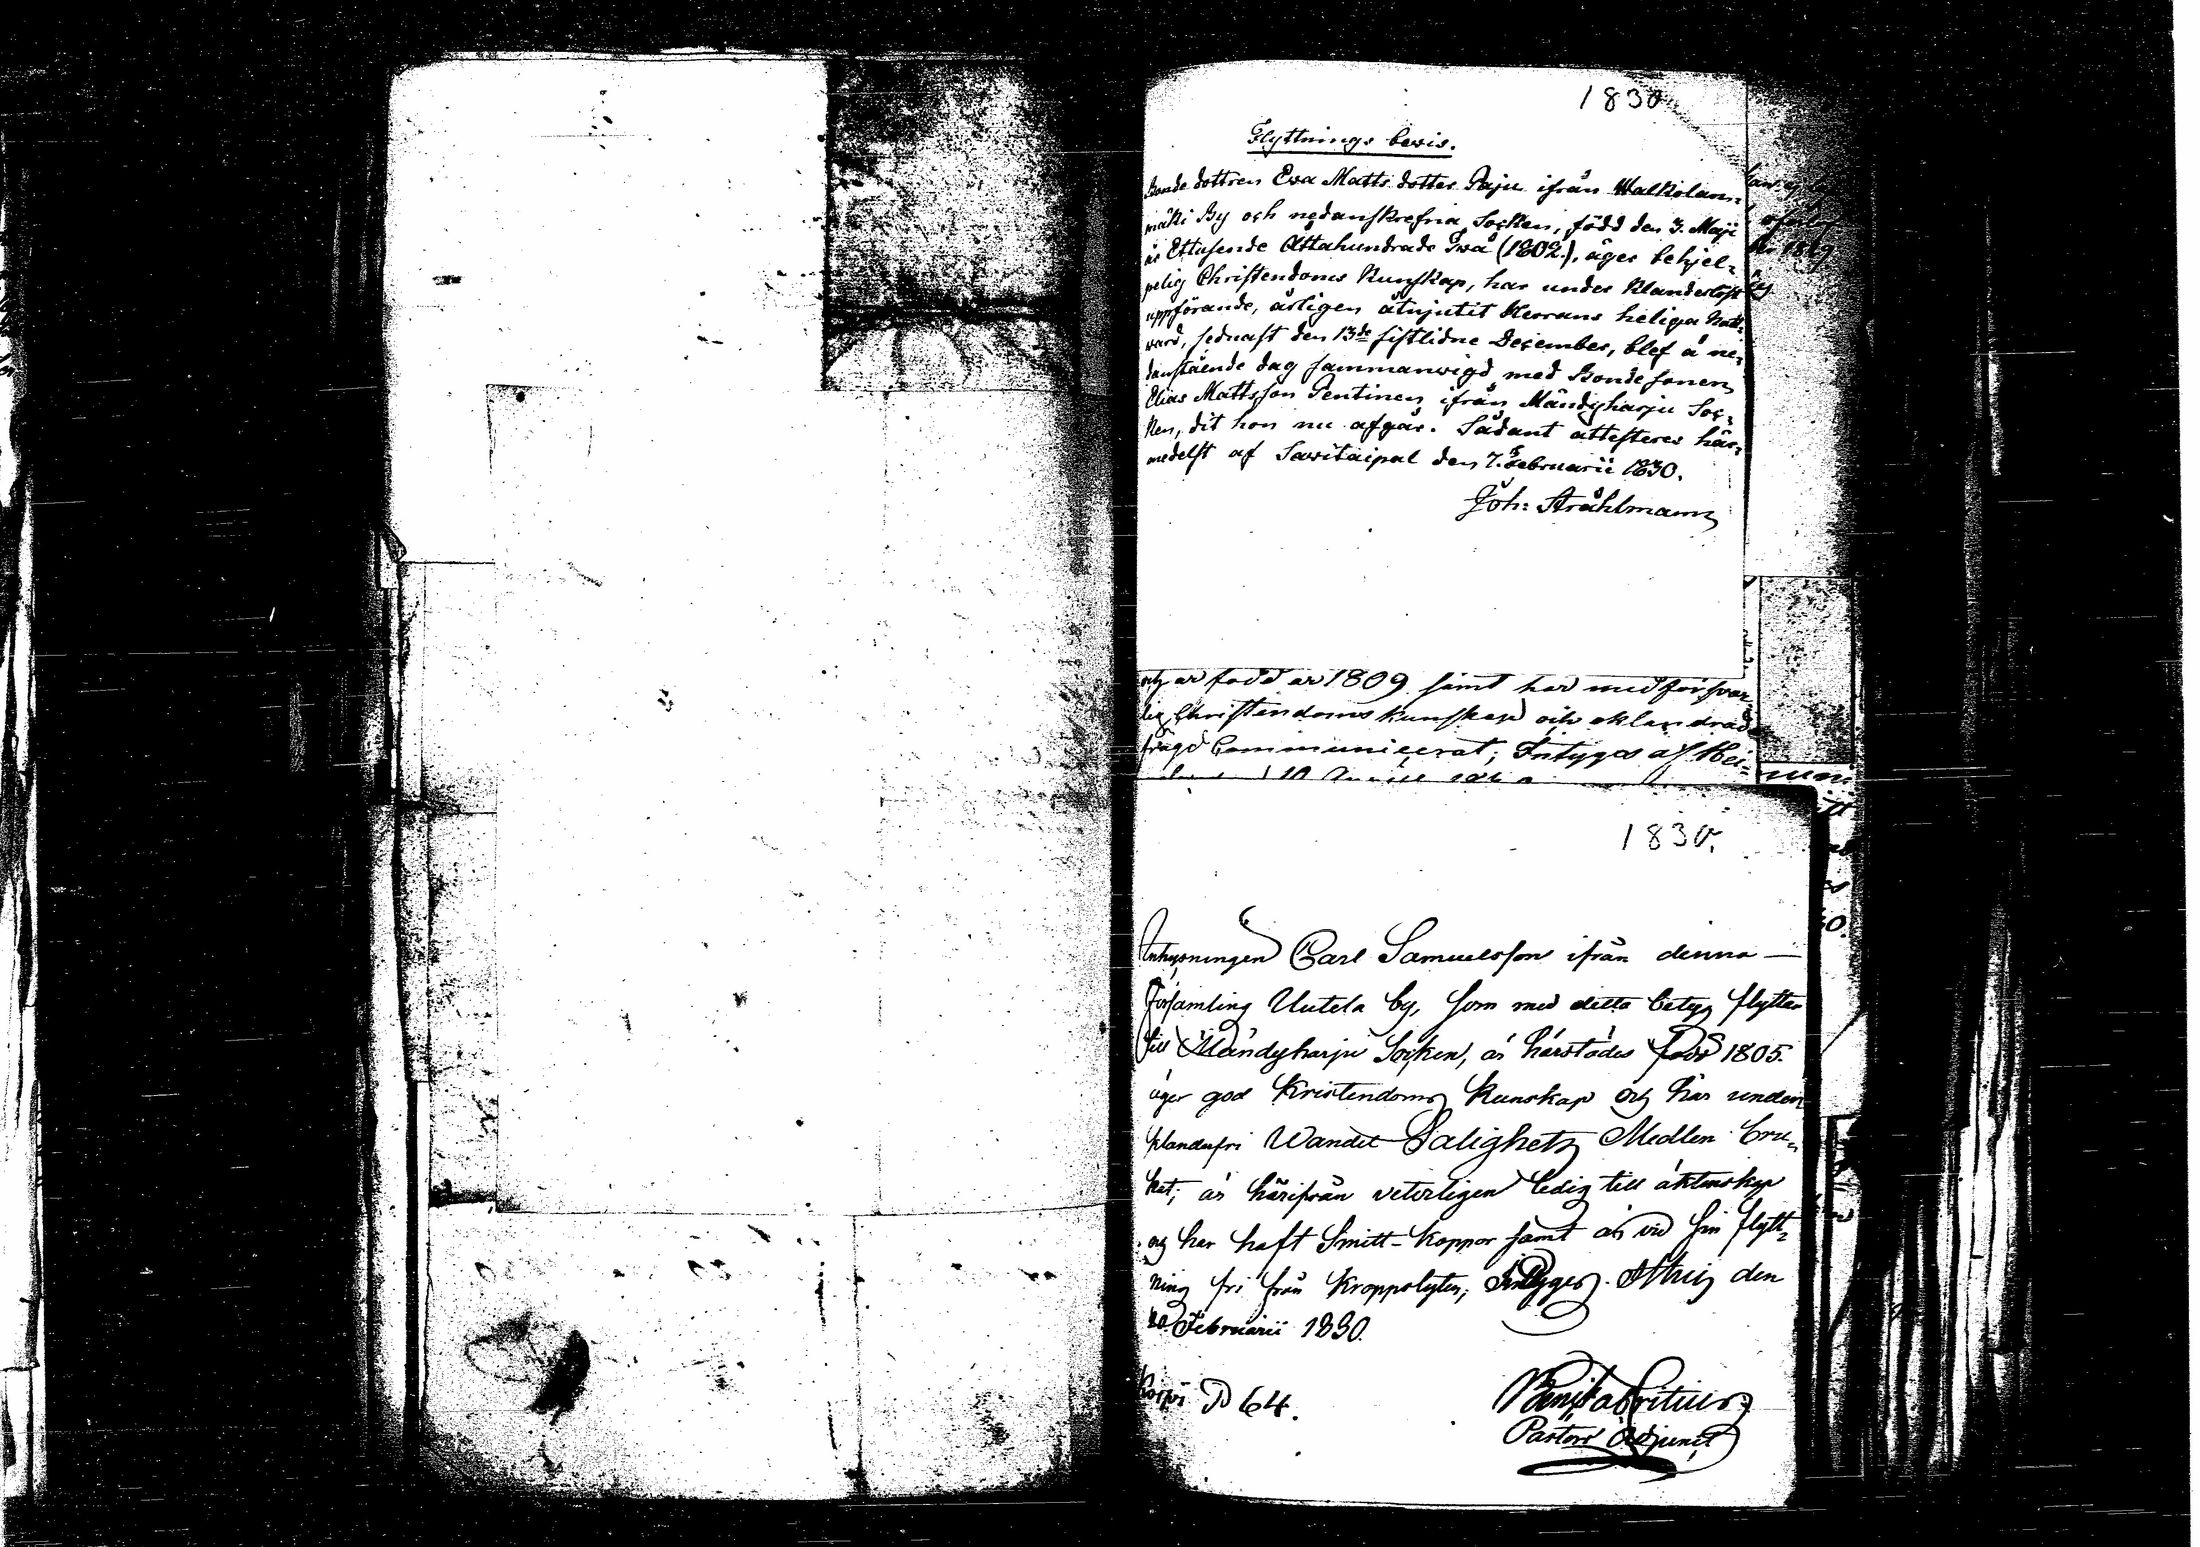 1830.
Flyttnings bevis.
Bonde dottren Eva Matts dotter Paju ifrån Walkolam¬
mäki By och nedanskrefna Socken, född den 3. Maji
år Ettusende Åttahundrade Två (1802.), äger behjel¬
pelig Christendoms Kunskap, har under Klanderlöst
uppförande, årligen åtnjutit Herrans heliga Natt¬
vard, sednast den 13de sistlidne December, blef å ne¬
danstående dag sammanvigd med Bondesonen
Elias Mattsson Pentinen ifrån Mändyharju Soc¬
ken, dit hon nu afgår. Sådant attesteres här¬
medelst af Savitaipal den 7. Februarii 1830.
Joh: Stråhlmann
1819
och är född år 1809 samt har med försvar¬
lig Christendoms kunskap och oklandrad
frägd Communicerat; Intygas af Hei¬
1830.
Inhysningen Carl Samuelsson ifrån denna
församling Uutela by, som med detta betyg flyttar
till Mändyharju Socken, är härstädes född 1805.
äger god Kristendoms Kunskap och har under
klanderfri Wandel Salighets Medlen bru¬
kat; är härifrån veterligen ledig till äktenskap
och har haft Smitt-koppor samt är vid sin flytt¬
ning fri från Kroppslyten, Intygas. St Mich den
20 Februarii 1830.
P 64.
Fabritius
Pastors Adjunct